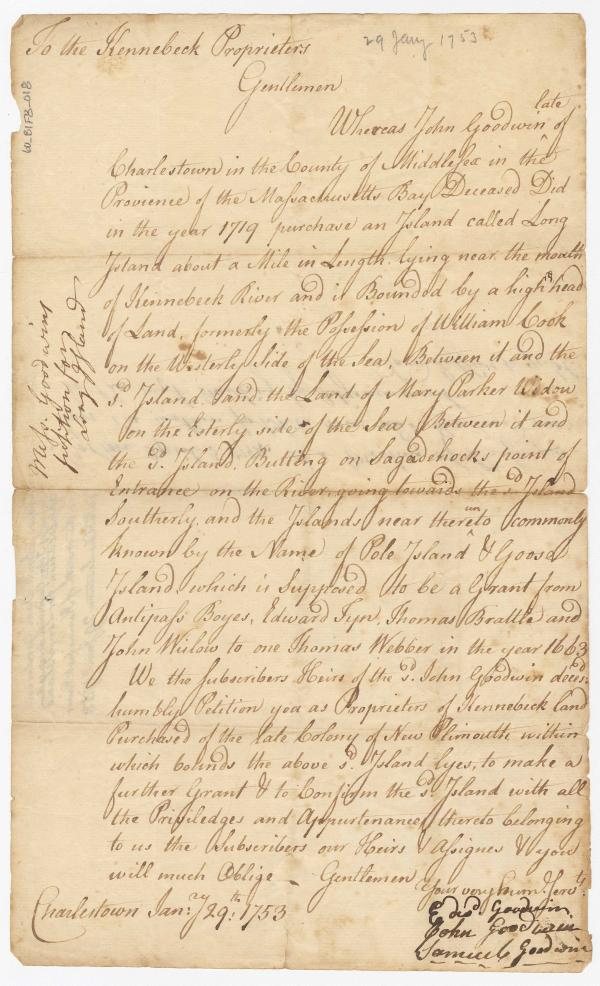 29 Jany 1753
To the Kennebeck Proprieters
Gentlemen
Whereas John Goodwin late of
Charlestown in the County of Middlesex in the
Provience of the Massachusetts Bay Deceased Did
in the year 1719 purchase an Island called Long
Island about a Mile in Length, lying near the mouth
of Kennebeck River and is Bounded by a high head
of Land, formerly the Possession of William Cook
on the Westerly Side of the Sea, Between it and the
sd. Island, and the Land of Mary Parker Widow
on the Esterly side of the Sea Between it and
the sd. Island, Butting on Sagadehocks point of
Entrance on the River, going towards the sd Island
Southerly, and the Islands near thereunto commonly
known by the Name of Pole Island & Goose
Island, which is Supposed to be a Grant from
Antipass Boyes, Edward Tyn, Thomas Brattle and
John Wislow to one Thomas Webber in the year 1663
We the Subscribers Heirs of the sd. John Goodwin decesd:
humbly Petition you as Proprieters of Kennebeck land
Purchased of the late Colony of New Plimouth within
which bounds the above sd. Island lyes, to make a
further Grant & to Confirm the sd. Island with all
the Priviledges and Appurtenances thereto belonging
to us the Subscribers our Heirs & Assignes & you
will much Oblige - Gentlemen
Your very hum. Servts.
Charlestown Janry 29th: 1753
Edwd Goodwin
John Goodwin
Samuel Goodwin
Mess. Goodwins
petition for
along Island
60_81FB-018